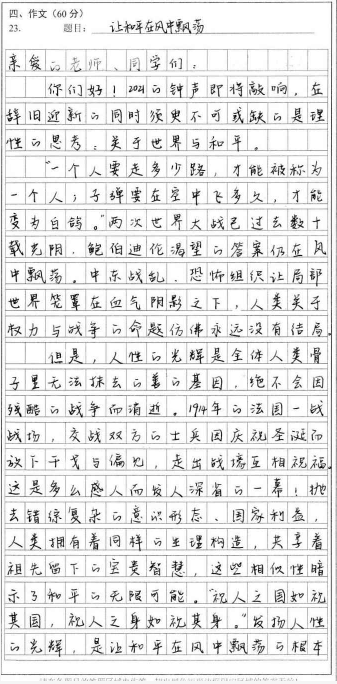 四、作文（60分）
23. 题目：让和平在风中飘荡
亲爱的老师、同学们：
你们好！2021的钟声即将敲响，在
辞旧迎新的同时须臾不可或缺的是理
性的思考：关于世界与和平。
“一个人要走多少路，才能被称为
一个人；子弹要在空中飞多久，才能
变为白鸽。”两次世界大战已过去数十
载光阴，鲍伯迪伦渴望的答案仍在风
中飘荡。中东战乱、恐怖组织让局部
世界笼罩在血气阴影之下，人类关于
权力与战争的命题仿佛永远没有结局。
但是，人性的光辉是全体人类骨
子里无法抹去的善的基因，绝不会因
残酷的战争而消逝。1914年的法国一战
战场，交战双方的士兵因庆祝圣诞而
放下干戈与偏见，走出战壕互相祝福。
这是多么感人而发人深省的一幕！抛
去错综复杂的意识形态、国家利益，
人类拥有着同样的生理构造，共享着
祖先留下的宝贵智慧，这些相似性暗
示了和平的无限可能。“视人之国如视
其国，视人之身如视其身。”发扬人性
的光辉，是让和平在风中飘荡的根本